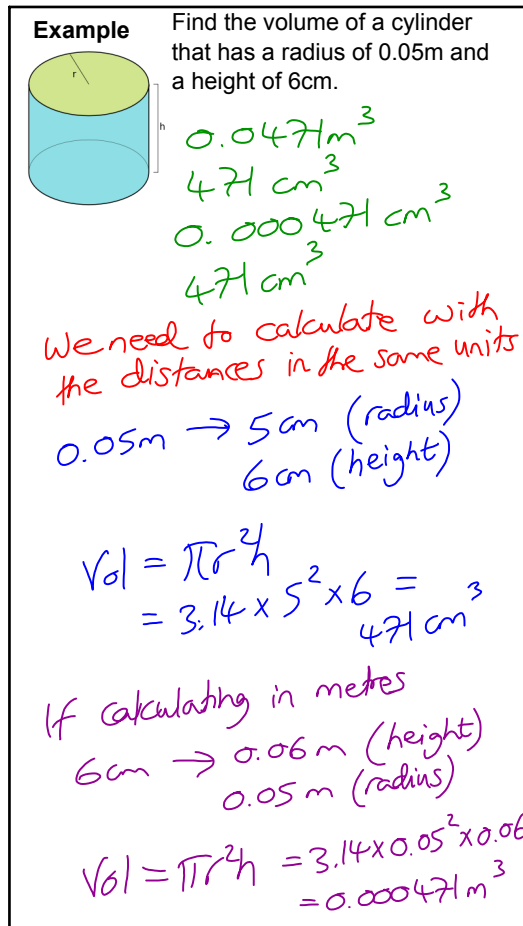 Example
Find the volume of a cylinder
that has a radius of 0.05m and
a height of 6cm.
r
h
0.0471m³
471 cm³
0.000471 cm³
471 cm³
We need to calculate with
the distances in the same units
0.05m → 5cm (radius)
6cm (height)
Vol = πr²h
= 3.14 × 5² × 6 =
471 cm³
If calculating in metres
6cm → 0.06m (height)
0.05m (radius)
Vol = πr²h = 3.14 × 0.05² × 0.06
= 0.000471m³